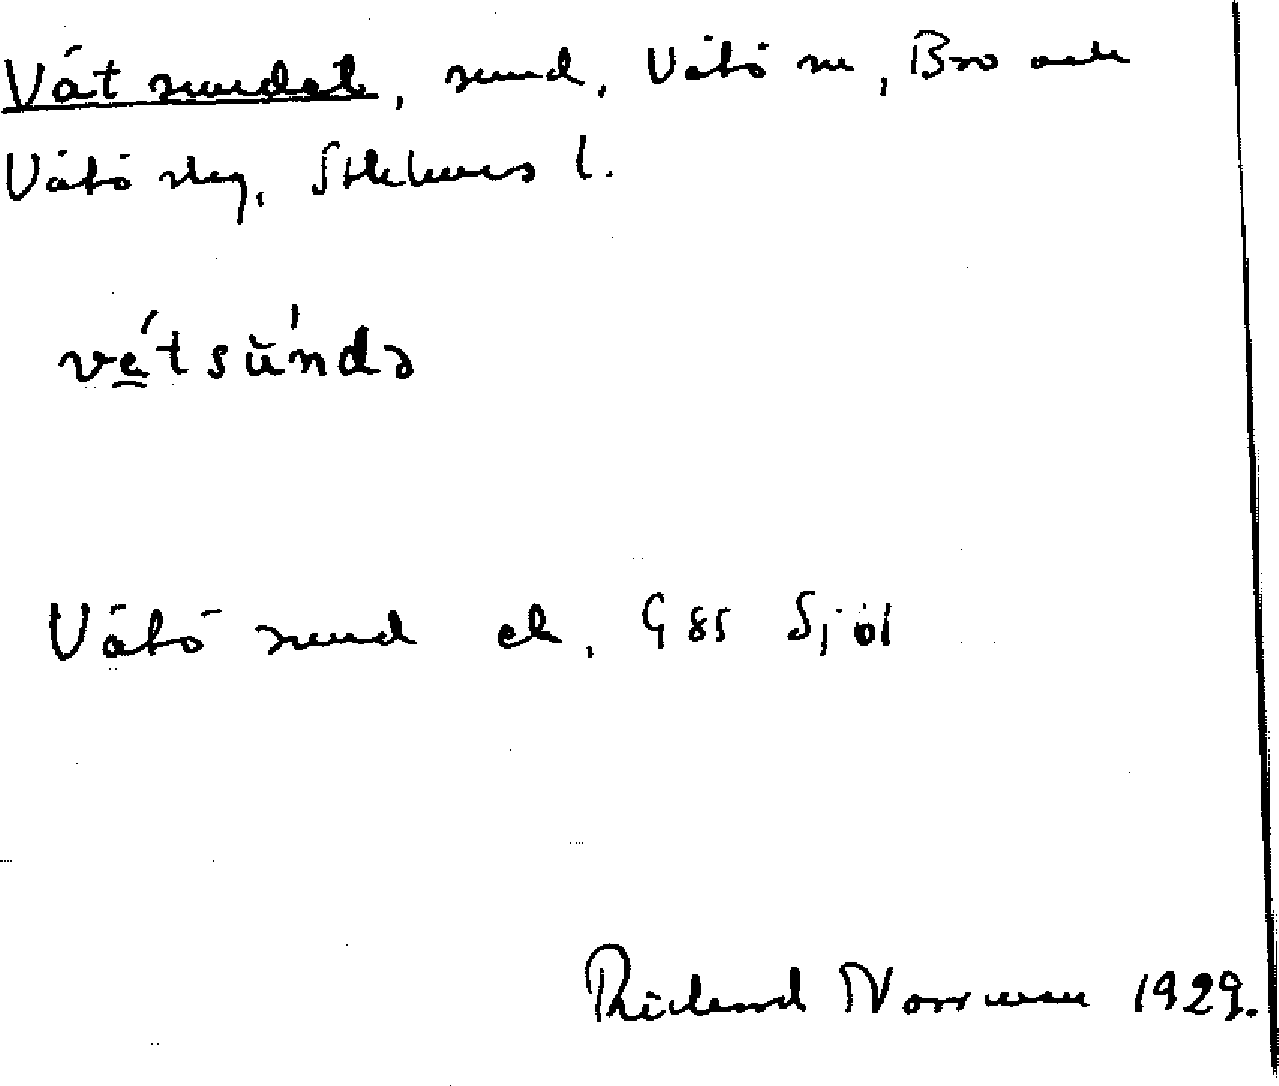 Vätsundet, sund, Vätö sn, Bro och
Vätö skg, Sthlms l.
vé̠tsŭ́ndə
Vätö sund ek, G85 Sjöl
Rickard Norrman 1929.